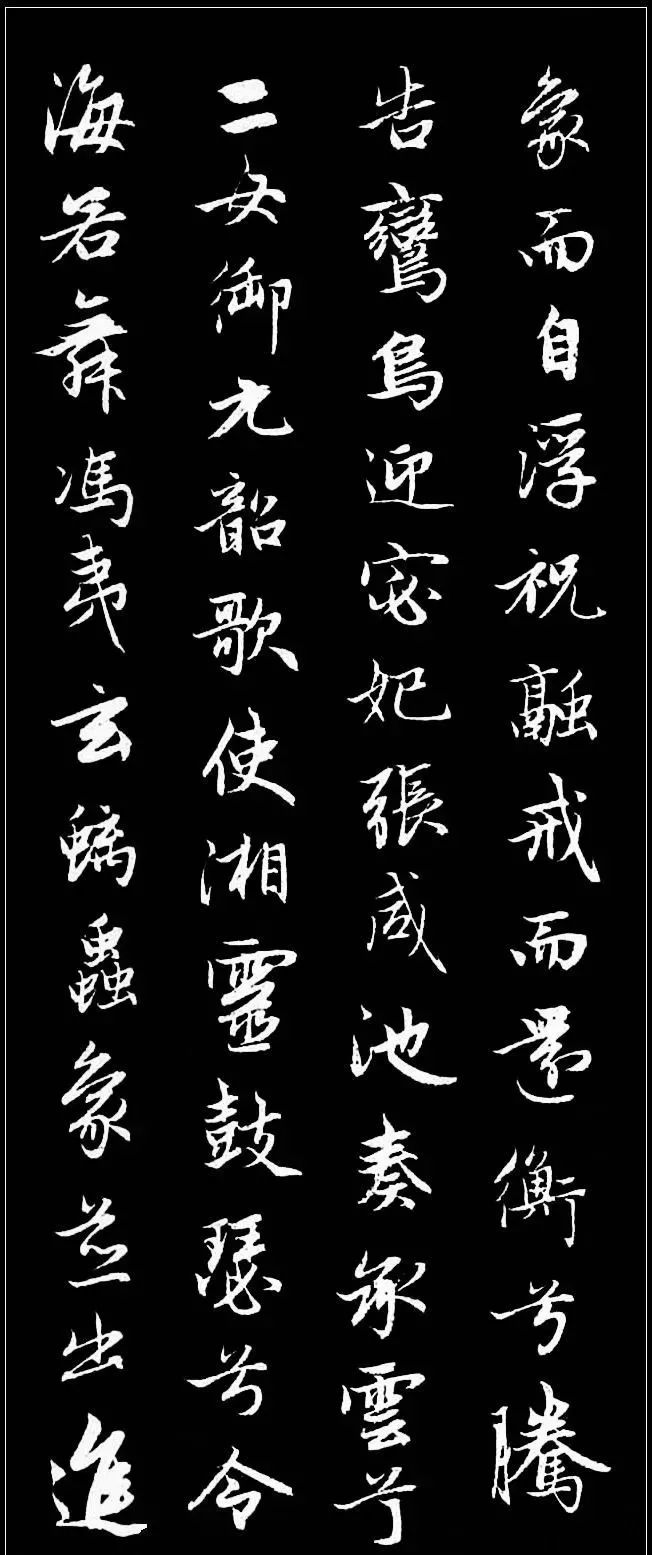 象而自浮祝融戒而還衡兮騰
告鸞鳥迎宓妃張咸池奏承雲兮
二女御九韶歌使湘靈鼓瑟兮令
海若舞馮夷玄螭蟲象並出進